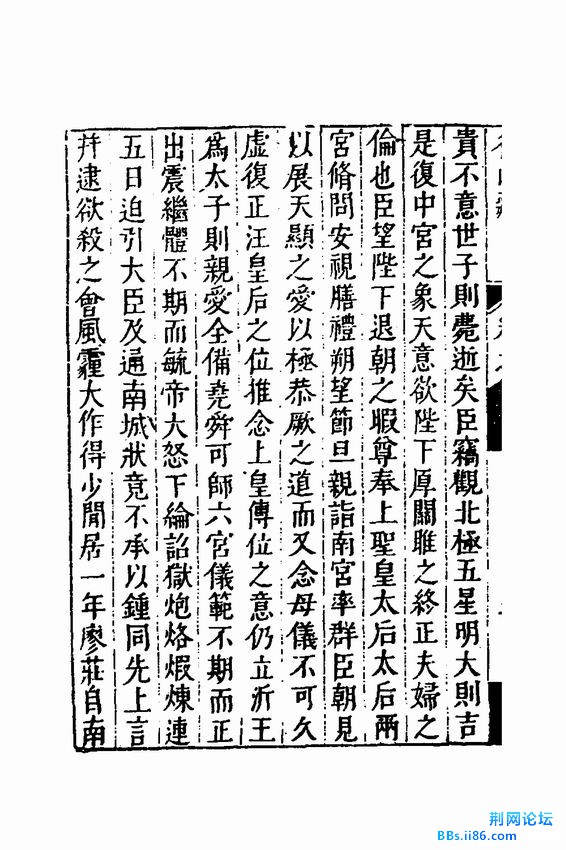 貴不意世子則薨逝矣臣竊觀北極五星明大則吉
是復中宮之象天意欲陛下厚關雎之終正夫婦之
倫也臣望陛下退朝之暇尊奉上聖皇太后太后兩
宮脩問安視膳禮朔望節旦親詣南宮率群臣朝見
以展天顯之愛以極恭厥之道而又念母儀不可久
虛復正汪皇后之位推念上皇傳位之意仍立沂王
爲太子則親愛全備堯舜可師六宮儀範不期而正
出震繼體不期而毓帝大怒下綸詔獄炮烙煆煉連
五日迫引大臣及通南城狀竟不承以鍾同先上言
并逮欲殺之會風霾大作得少閒居一年廖莊自南
荆网论坛
BBs.ii86.com